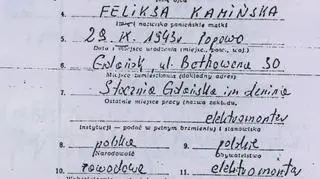 4. FELIKSA KAMIŃSKA
Imię i nazwisko panieńskie matki
5. 29. IX. 1943r. Popowo
Data i miejsce urodzenia (miejsc., pow., woj.)
6. Gdańsk, ul. Bethovena 30
Miejsce zamieszkania (dokładny adres)
7. Stocznia Gdańska im. Lenina
Ostatnie miejsce pracy (nazwa zakładu,
elektromonter
instytucji — podać w pełnym brzmieniu i stanowiska
8. polska 9. polskie
Narodowość Obywatelstwo
10. zawodowe 11. elektromonter